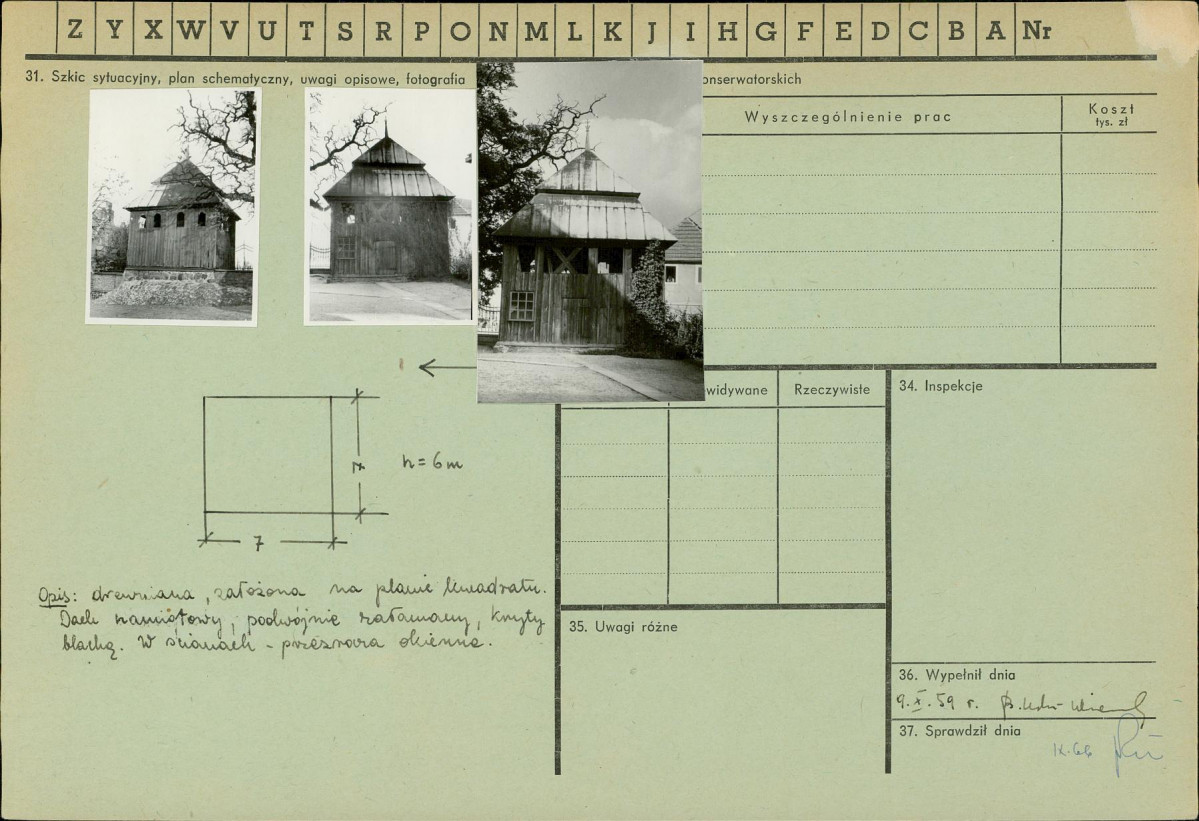 Z Y X W V U T S R P O N M L K J I H G F E D C B A Nr
31. Szkic sytuacyjny, plan schematyczny, uwagi opisowe, fotografia
onserwatorskich
Wyszczególnienie prac
Koszt
tys. zł
widywane
Rzeczywiste
34. Inspekcje
7
h = 6 m
7
Opis: drewniana, założona na planie kwadratu.
Dach namiotowy, podwójnie załamany, kryty
blachą. W ścianach - przeźrocza okienne.
35. Uwagi różne
36. Wypełnił dnia
9.X.59 r.
37. Sprawdził dnia
IX.66